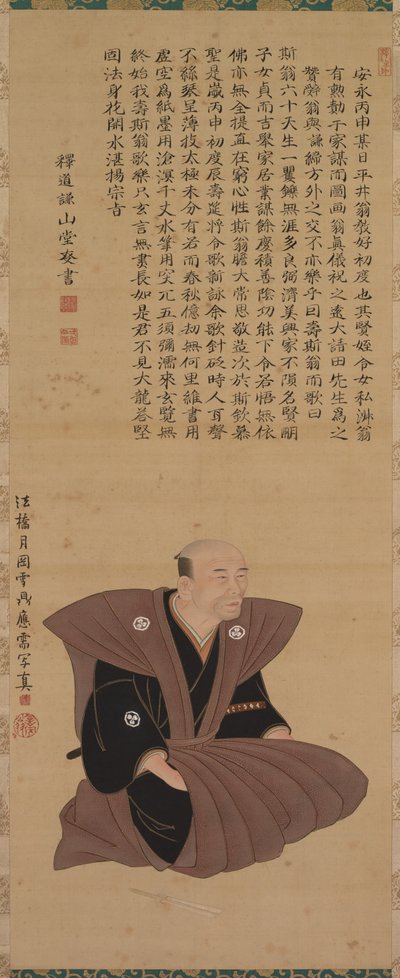 安永丙申某日平井翁敎好初度也其賢姪令女私淋翁
有勲勳于家謀而圖画翁真儀祝之遠大請田先生爲之
贊辭翁與謙締方外之交不亦樂乎曰壽斯翁而歌曰
斯翁六十天生一矍鑠無涯多良弼濟美興家不隕名賢嗣
子女貞而吉擧家居業謀餘慶積善陰功能下令若悟無依
佛亦無全提直在窮心性斯翁膽大常思敬造次於斯欽慕
聖是歳丙申初度辰壽莚將令歌新詠余歌針砭時人耳聲
不絲琴呈薄技太極未分有若而春秋億劫無何里維書用
虚空為紙墨用滄溟千丈水筆用突兀五須彌濡來玄覧無
終始我壽斯翁歌樂只玄言無盡長如是君不見大龍荅堅
固法身花開水湛揚宗旨
釋道謙山堂麥書
法橋月岡雪鼎應需写真